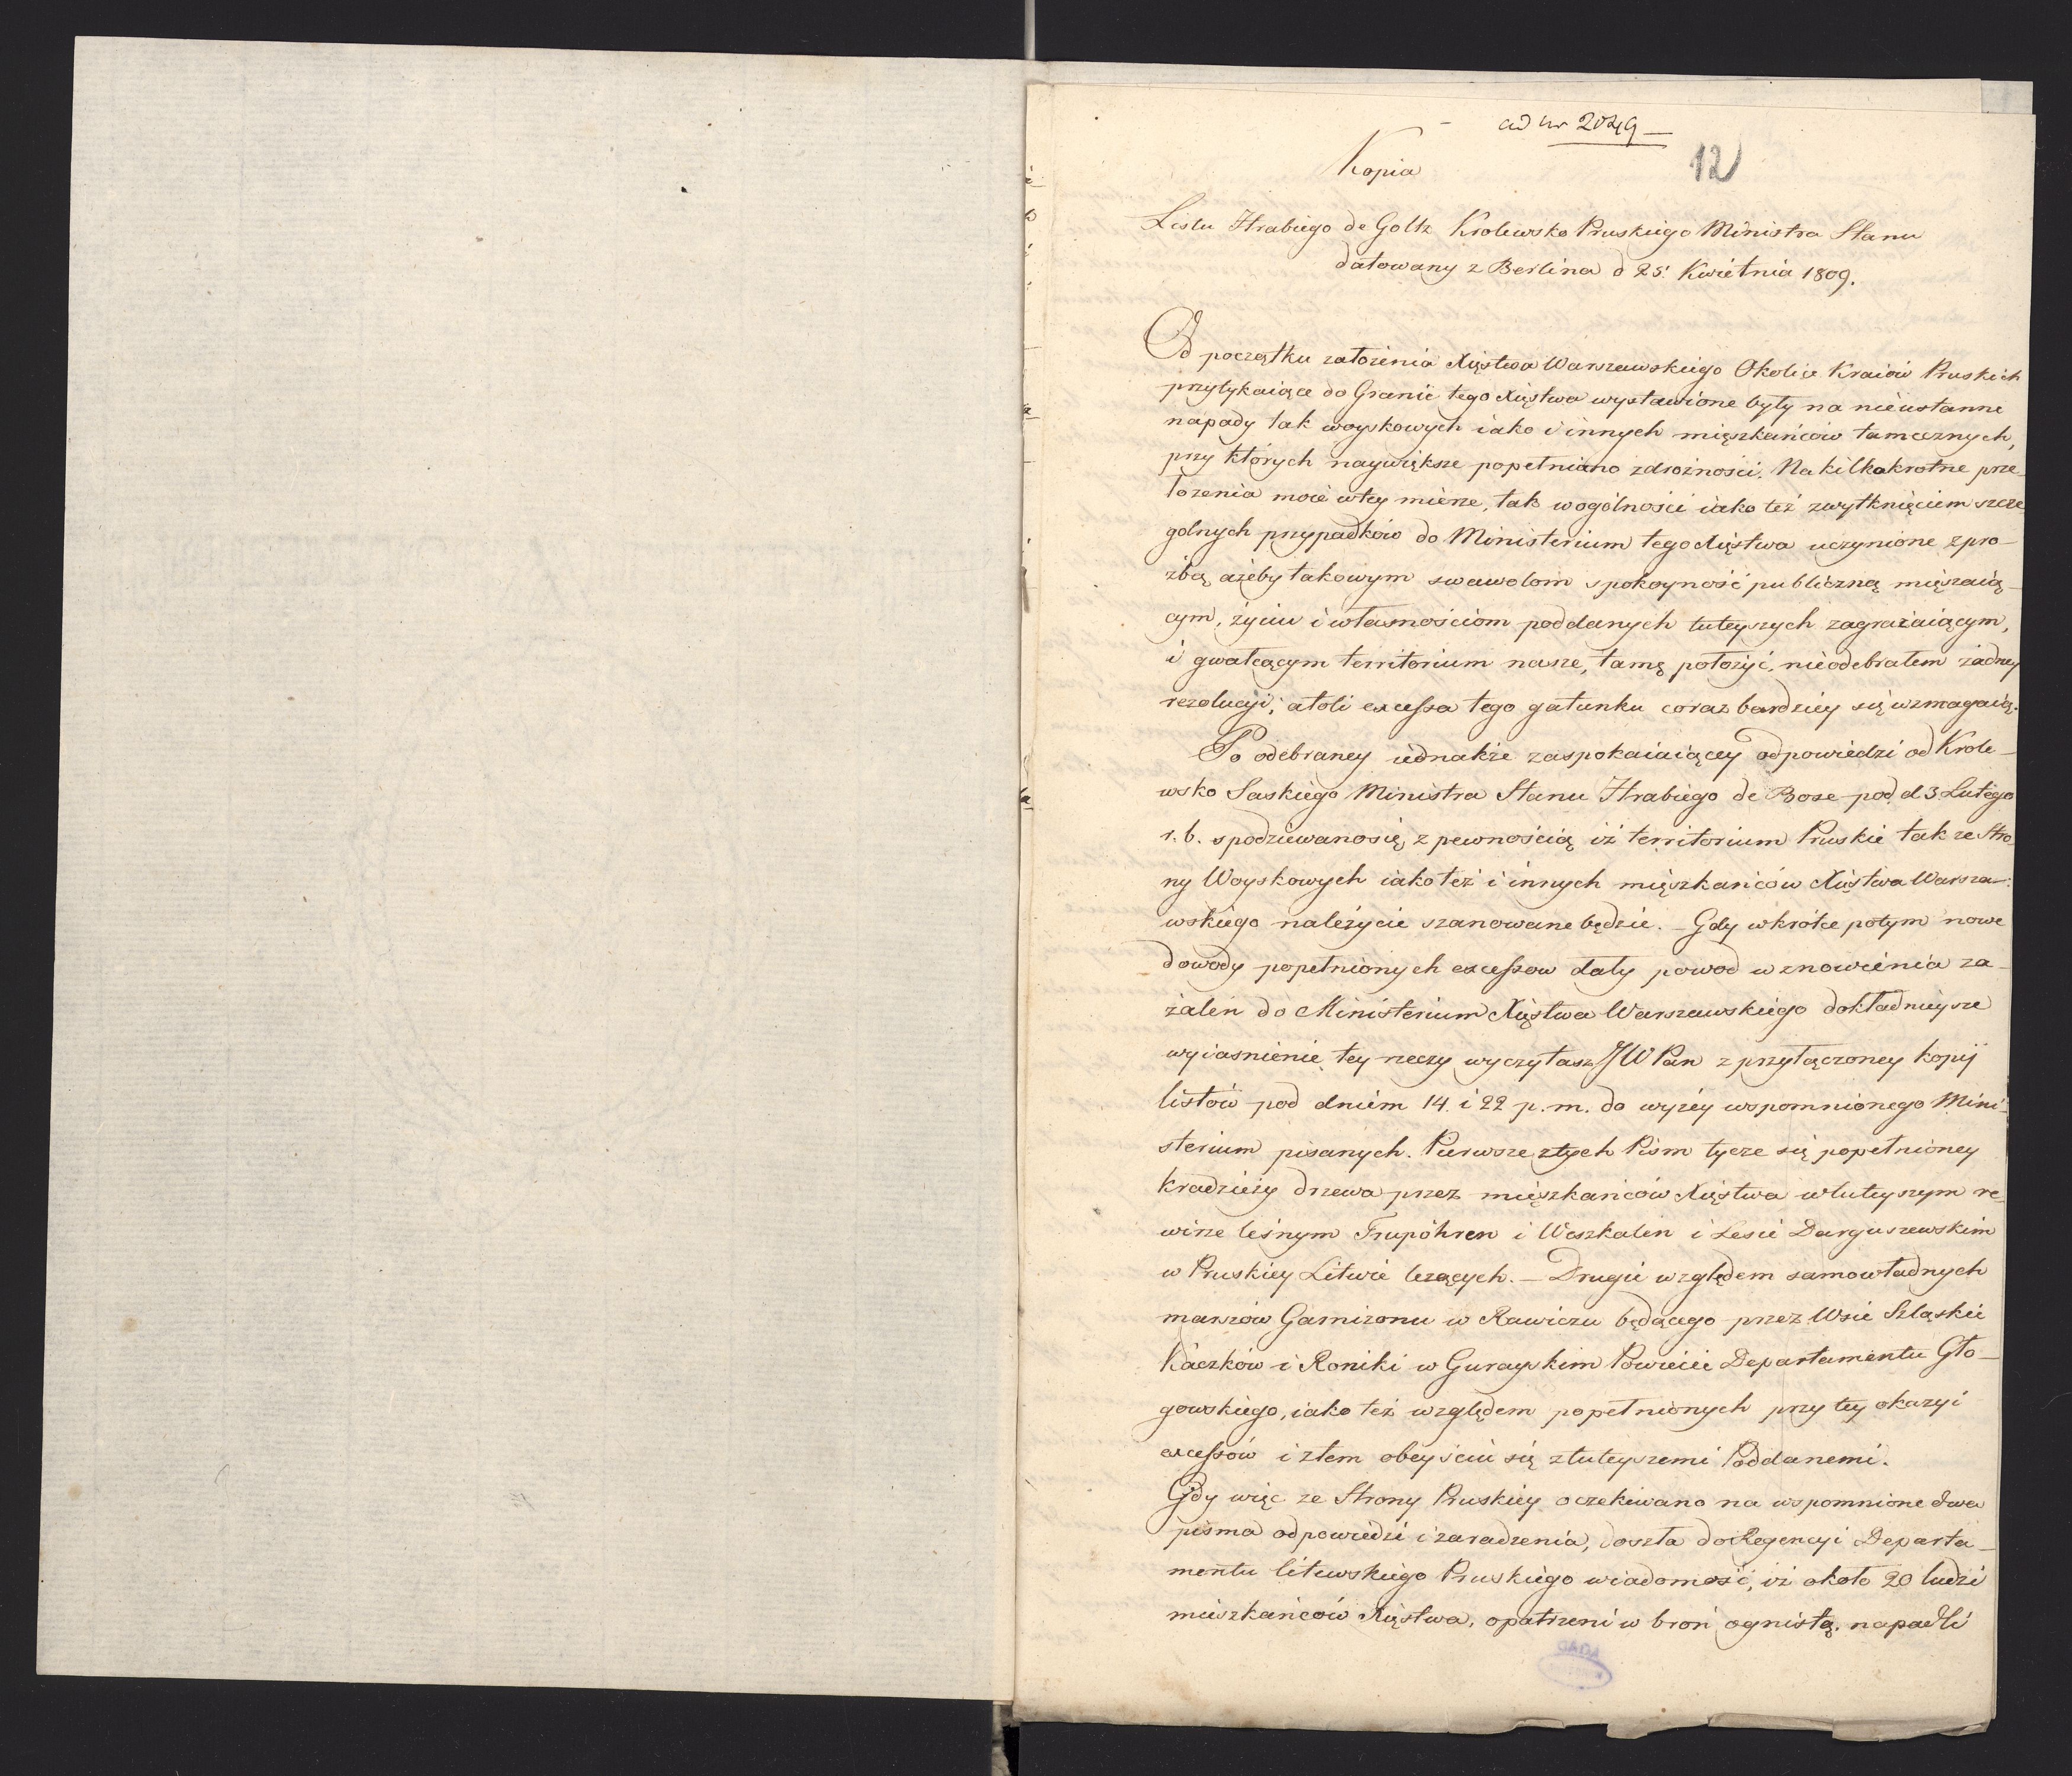 ad nr 2049
12
Kopia
Listu Hrabiego de Goltz Krolewsko Pruskiego Ministra Stanu
datowany z Berlina d 25. Kwietnia 1809.
Od początku założenia Xięstwa Warszawskiego Okolice Kraiów Pruskich
przytykaiące do Granic tego Xięstwa wystawione były na nieustanne
napady tak woyskowych iako i innych mięszkańców tamecznych,
przy których naywiększe popełniano zdrożności. Na kilkakrotne prze-
łożenia moie w tey mierze, tak w ogólności iako też z wytknięciem szcze-
golnych przypadków do Ministerium tego Xięstwa uczynione z pro-
zbą ażeby takowym swawolom spokoyność publiczną mięszaią-
cym, życiu i własnościom poddanych tuteyszych zagrażaiącym,
i gwałcącym territorium nasze, tamę położyć, nieodebrałem żadney
rezolucyi; atoli excessa tego gatunku coraz bardziey się wzmagaią.
Po odebraney iednakże zaspokaiaiącey odpowiedzi od Krole-
wsko Saskiego Ministra Stanu Hrabiego de Bose pod d 3 Lutego
r. b. spodziewano się z pewnością iż territorium Pruskie tak ze Stro-
ny Woyskowych iako też i innych mięszkańców Xięstwa Warsza-
wskiego należycie szanowane będzie. – Gdy wkrótce potym nowe
dowody popełnionych excessow dały powod wznowienia za-
żaleń do Ministerium Xięstwa Warszawskiego dokładnieysze
wyiasnienie tey rzeczy wyczytasz JW Pan z przyłączoney kopij
listów pod dniem 14. i 22 p. m. do wyżey wspomnionego Mini-
sterium pisanych. Pierwsze z tych Pism tycze się popełnioney
kradzieży drzewa przez mięszkańców Xięstwa w tuteyszym re-
wirze leśnym Trupöhren i Weszkalen i Lesie Darguszewskim
w Pruskiey Litwie leżących. – Drugie względem samowładnych
marszów Garnizonu w Rawiczu będącego przez Wsie Szląskie
Kaczków i Roniki w Gurayskim Powiecie Departamentu Gło-
gowskiego, iako też względem popełnionych przy tey okazyi
excessów i złem obeyściu się z tuteyszemi Poddanemi.
Gdy więc ze Strony Pruskiey oczekiwano na wspomnione dwa
pisma odpowiedzi i zaradzenia, doszła do Regencyi Departa-
mentu litewskiego Pruskiego wiadomość, iż około 20 ludzi
mieszkańców Xięstwa, opatrzeni w broń ognistą, napadli